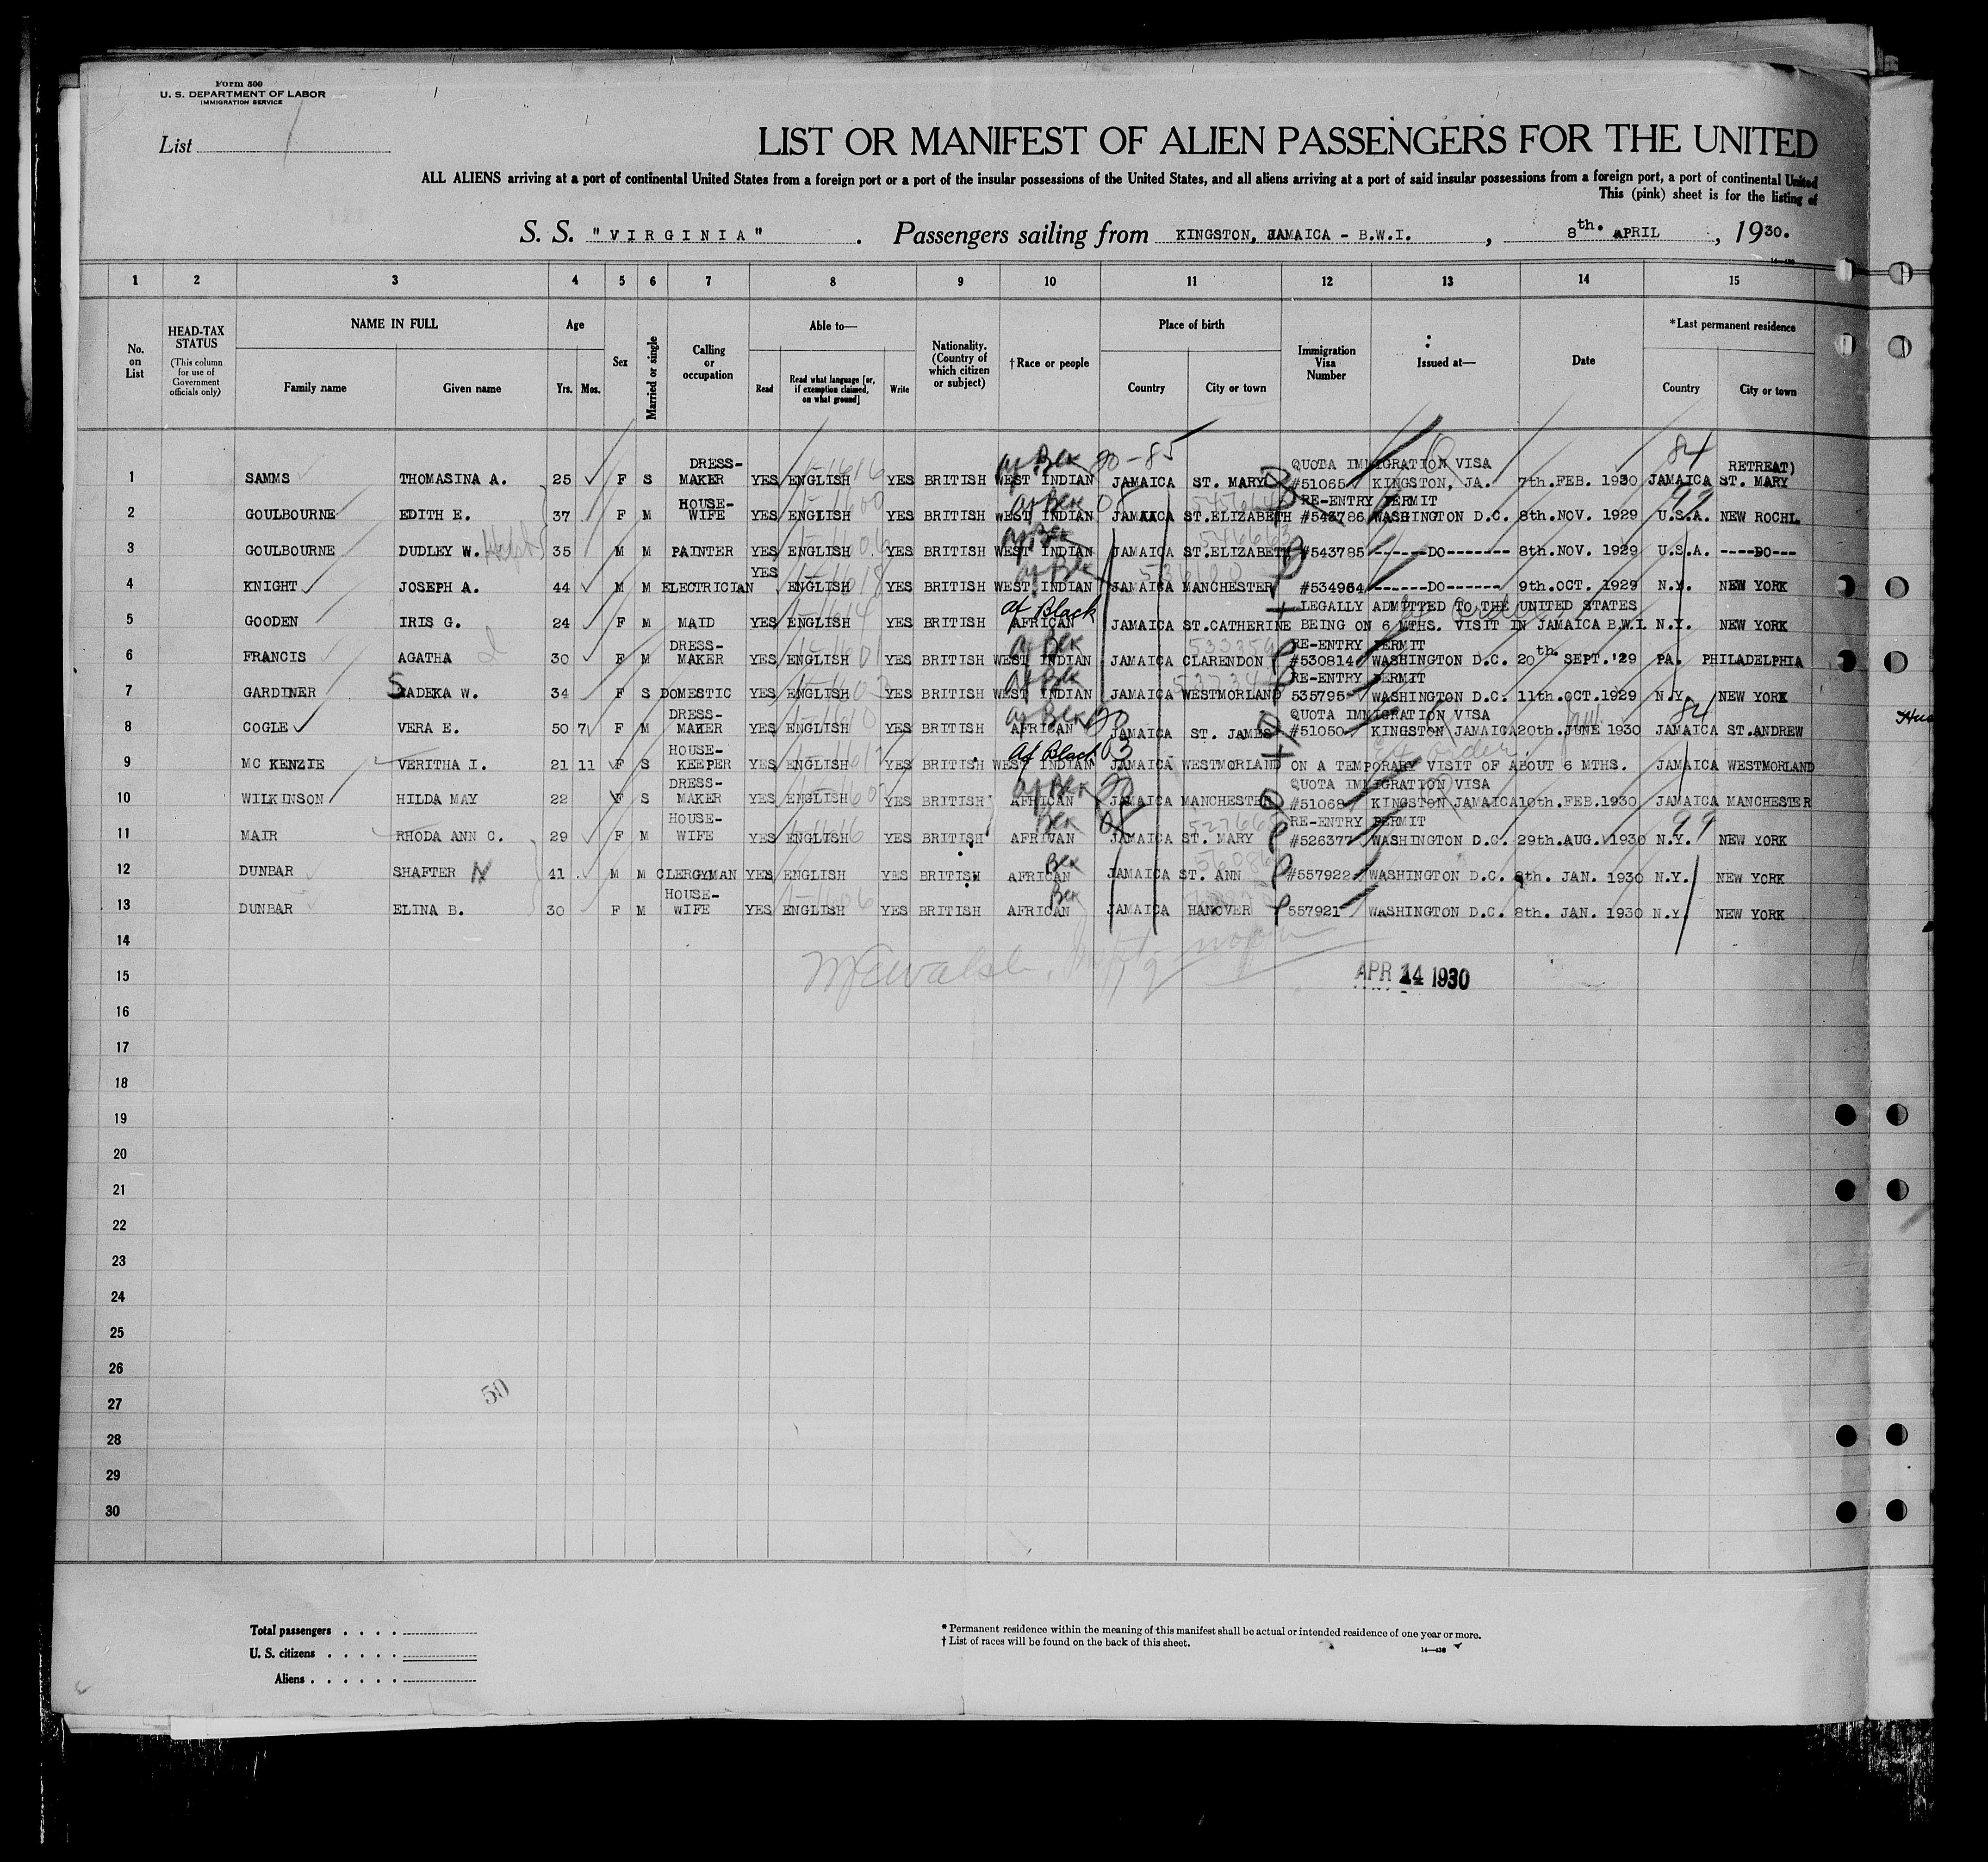 Form 500
U. S. DEPARTMENT OF LABOR
IMMIGRATION SERVICE
List
LIST OR MANIFEST OF ALIEN PASSENGERS FOR THE UNITED
ALL ALIENS arriving at a port of continental United States from a foreign port or a port of the insular possessions of the United States, and all aliens arriving at a port of said insular possessions from a foreign port, a port of continental United
This (pink) sheet is for the listing of
S. S. "VIRGINIA" . Passengers sailing from KINGSTON, JAMAICA - B.W.I. , 8th. APRIL , 1930.
1 2 3 4 5 6 7 8 9 10 11 12 13 14 15
No. on List
HEAD-TAX STATUS (This column for use of Government officials only)
NAME IN FULL
Family name Given name
Age
Yrs. Mos.
Sex
Married or single
Calling or occupation
Able to—
Read Read what language [or, if exemption claimed, on what ground] Write
Nationality. (Country of which citizen or subject)
† Race or people
Place of birth
Country City or town
Immigration Visa Number
Issued at—
Date
*Last permanent residence
Country City or town
84
DRESS- QUOTA IMMIGRATION VISA RETREAT)
1 SAMMS THOMASINA A. 25 F S MAKER YES ENGLISH YES BRITISH WEST INDIAN JAMAICA ST. MARY #51065 KINGSTON, JA. 7th.FEB. 1930 JAMAICA ST. MARY
HOUSE- RE-ENTRY PERMIT 99
2 GOULBOURNE EDITH E. 37 F M WIFE YES ENGLISH YES BRITISH WEST INDIAN JAMAICA ST.ELIZABETH #543786 WASHINGTON D.C. 8th.NOV. 1929 U.S.A. NEW ROCHL.
3 GOULBOURNE DUDLEY W. 35 M M PAINTER YES ENGLISH YES BRITISH WEST INDIAN JAMAICA ST.ELIZABETH #543785 ------DO------- 8th.NOV. 1929 U.S.A. ----DO---
YES
4 KNIGHT JOSEPH A. 44 M M ELECTRICIAN ENGLISH YES BRITISH WEST INDIAN JAMAICA MANCHESTER #534964 ------DO------ 9th.OCT. 1929 N.Y. NEW YORK
af Black LEGALLY ADMITTED TO THE UNITED STATES
5 GOODEN IRIS G. 24 F M MAID YES ENGLISH YES BRITISH AFRICAN JAMAICA ST.CATHERINE BEING ON 6 MTHS. VISIT IN JAMAICA B.W.I. N.Y. NEW YORK
DRESS- RE-ENTRY PERMIT
6 FRANCIS AGATHA 30 F M MAKER YES ENGLISH YES BRITISH WEST INDIAN JAMAICA CLARENDON #530814 WASHINGTON D.C. 20th SEPT.'29 PA. PHILADELPHIA
RE-ENTRY PERMIT
7 GARDINER SADEKA W. 34 F S DOMESTIC YES ENGLISH YES BRITISH WEST INDIAN JAMAICA WESTMORLAND 535795 WASHINGTON D.C. 11th.OCT.1929 N.Y. NEW YORK
DRESS- QUOTA IMMIGRATION VISA 84
8 COGLE VERA E. 50 7 F M MAKER YES ENGLISH YES BRITISH AFRICAN JAMAICA ST. JAMES #51050 KINGSTON JAMAICA 20th.JUNE 1930 JAMAICA ST.ANDREW
HOUSE- af Black 03
9 MC KENZIE VERITHA I. 21 11 F S KEEPER YES ENGLISH YES BRITISH WEST INDIAN JAMAICA WESTMORLAND ON A TEMPORARY VISIT OF ABOUT 6 MTHS. JAMAICA WESTMORLAND
DRESS- QUOTA IMMIGRATION VISA
10 WILKINSON HILDA MAY 22 F S MAKER YES ENGLISH YES BRITISH AFRICAN JAMAICA MANCHESTER #51068 KINGSTON JAMAICA 10th.FEB.1930 JAMAICA MANCHESTER
HOUSE- RE-ENTRY PERMIT 99
11 MAIR RHODA ANN C. 29 F M WIFE YES ENGLISH YES BRITISH AFRICAN JAMAICA ST. MARY #526377 WASHINGTON D.C. 29th.AUG. 1930 N.Y. NEW YORK
12 DUNBAR SHAFTER N 41 M M CLERGYMAN YES ENGLISH YES BRITISH AFRICAN JAMAICA ST. ANN #557922 WASHINGTON D.C. 8th. JAN. 1930 N.Y. NEW YORK
HOUSE-
13 DUNBAR ELINA B. 30 F M WIFE YES ENGLISH YES BRITISH AFRICAN JAMAICA HANOVER 557921 WASHINGTON D.C. 8th. JAN. 1930 N.Y. NEW YORK
14
15 APR 14 1930
16
17
18
19
20
21
22
23
24
25
26
27
28
29
30
50
Total passengers . . . .
U. S. citizens . . . . .
Aliens . . . . . .
* Permanent residence within the meaning of this manifest shall be actual or intended residence of one year or more.
† List of races will be found on the back of this sheet.